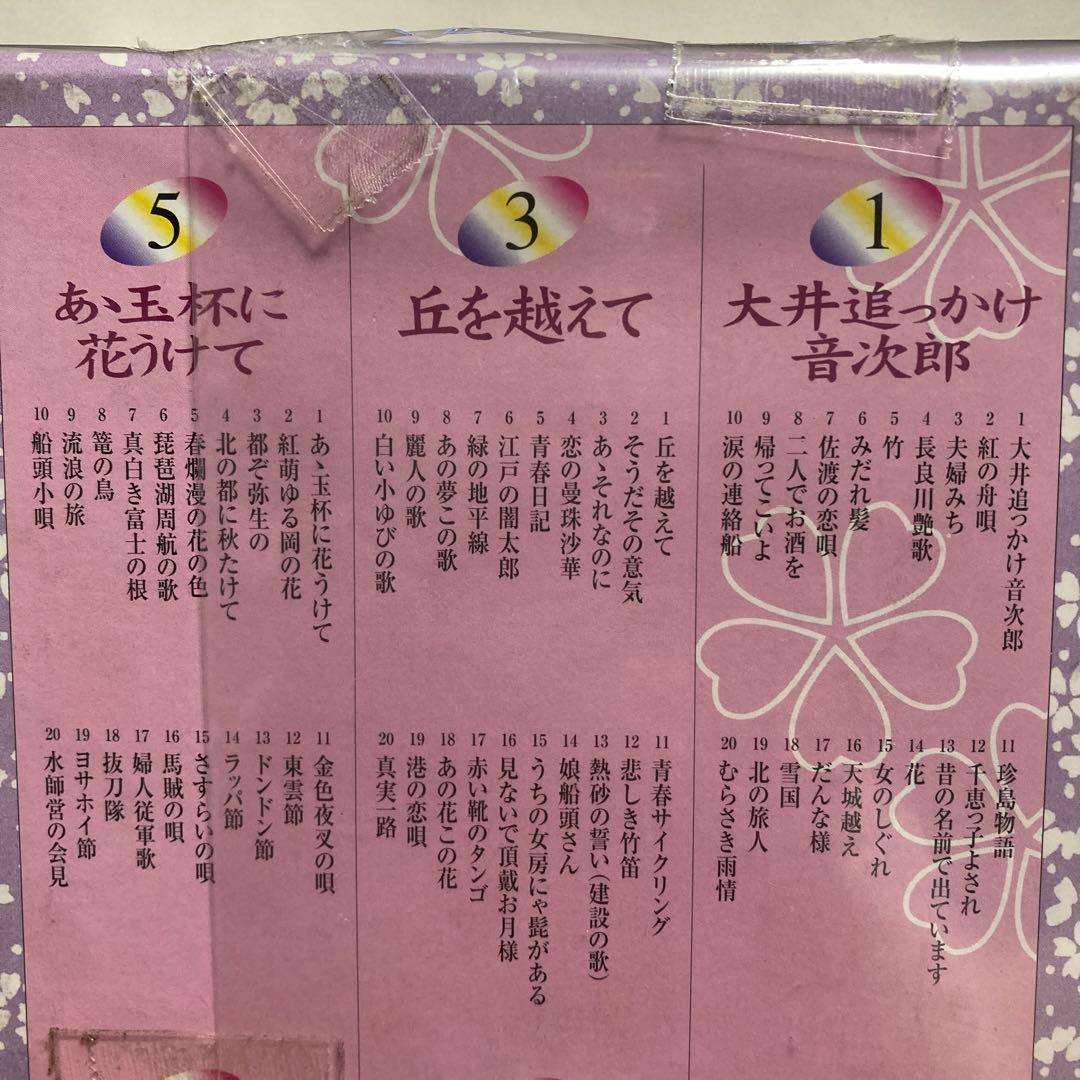 1
大井追っかけ
音次郎
1 大井追っかけ音次郎
2 紅の舟唄
3 夫婦みち
4 長良川艶歌
5 竹
6 みだれ髪
7 佐渡の恋唄
8 二人でお酒を
9 帰ってこいよ
10 涙の連絡船
11 珍島物語
12 千恵っ子よされ
13 昔の名前で出ています
14 花
15 女のしぐれ
16 天城越え
17 だんな様
18 雪国
19 北の旅人
20 むらさき雨情
3
丘を越えて
1 丘を越えて
2 そうだその意気
3 あゝそれなのに
4 恋の曼珠沙華
5 青春日記
6 江戸の闇太郎
7 緑の地平線
8 あの夢この歌
9 麗人の歌
10 白い小ゆびの歌
11 青春サイクリング
12 悲しき竹笛
13 熱砂の誓い(建設の歌)
14 娘船頭さん
15 うちの女房にゃ髭がある
16 見ないで頂戴お月様
17 赤い靴のタンゴ
18 あの花この花
19 港の恋唄
20 真実一路
5
あゝ玉杯に
花うけて
1 あゝ玉杯に花うけて
2 紅萌ゆる岡の花
3 都ぞ弥生の
4 北の都に秋たけて
5 春爛漫の花の色
6 琵琶湖周航の歌
7 真白き富士の根
8 篭の鳥
9 流浪の旅
10 船頭小唄
11 金色夜叉の唄
12 東雲節
13 ドンドン節
14 ラッパ節
15 さすらいの唄
16 馬賊の唄
17 婦人従軍歌
18 抜刀隊
19 ヨサホイ節
20 水師営の会見